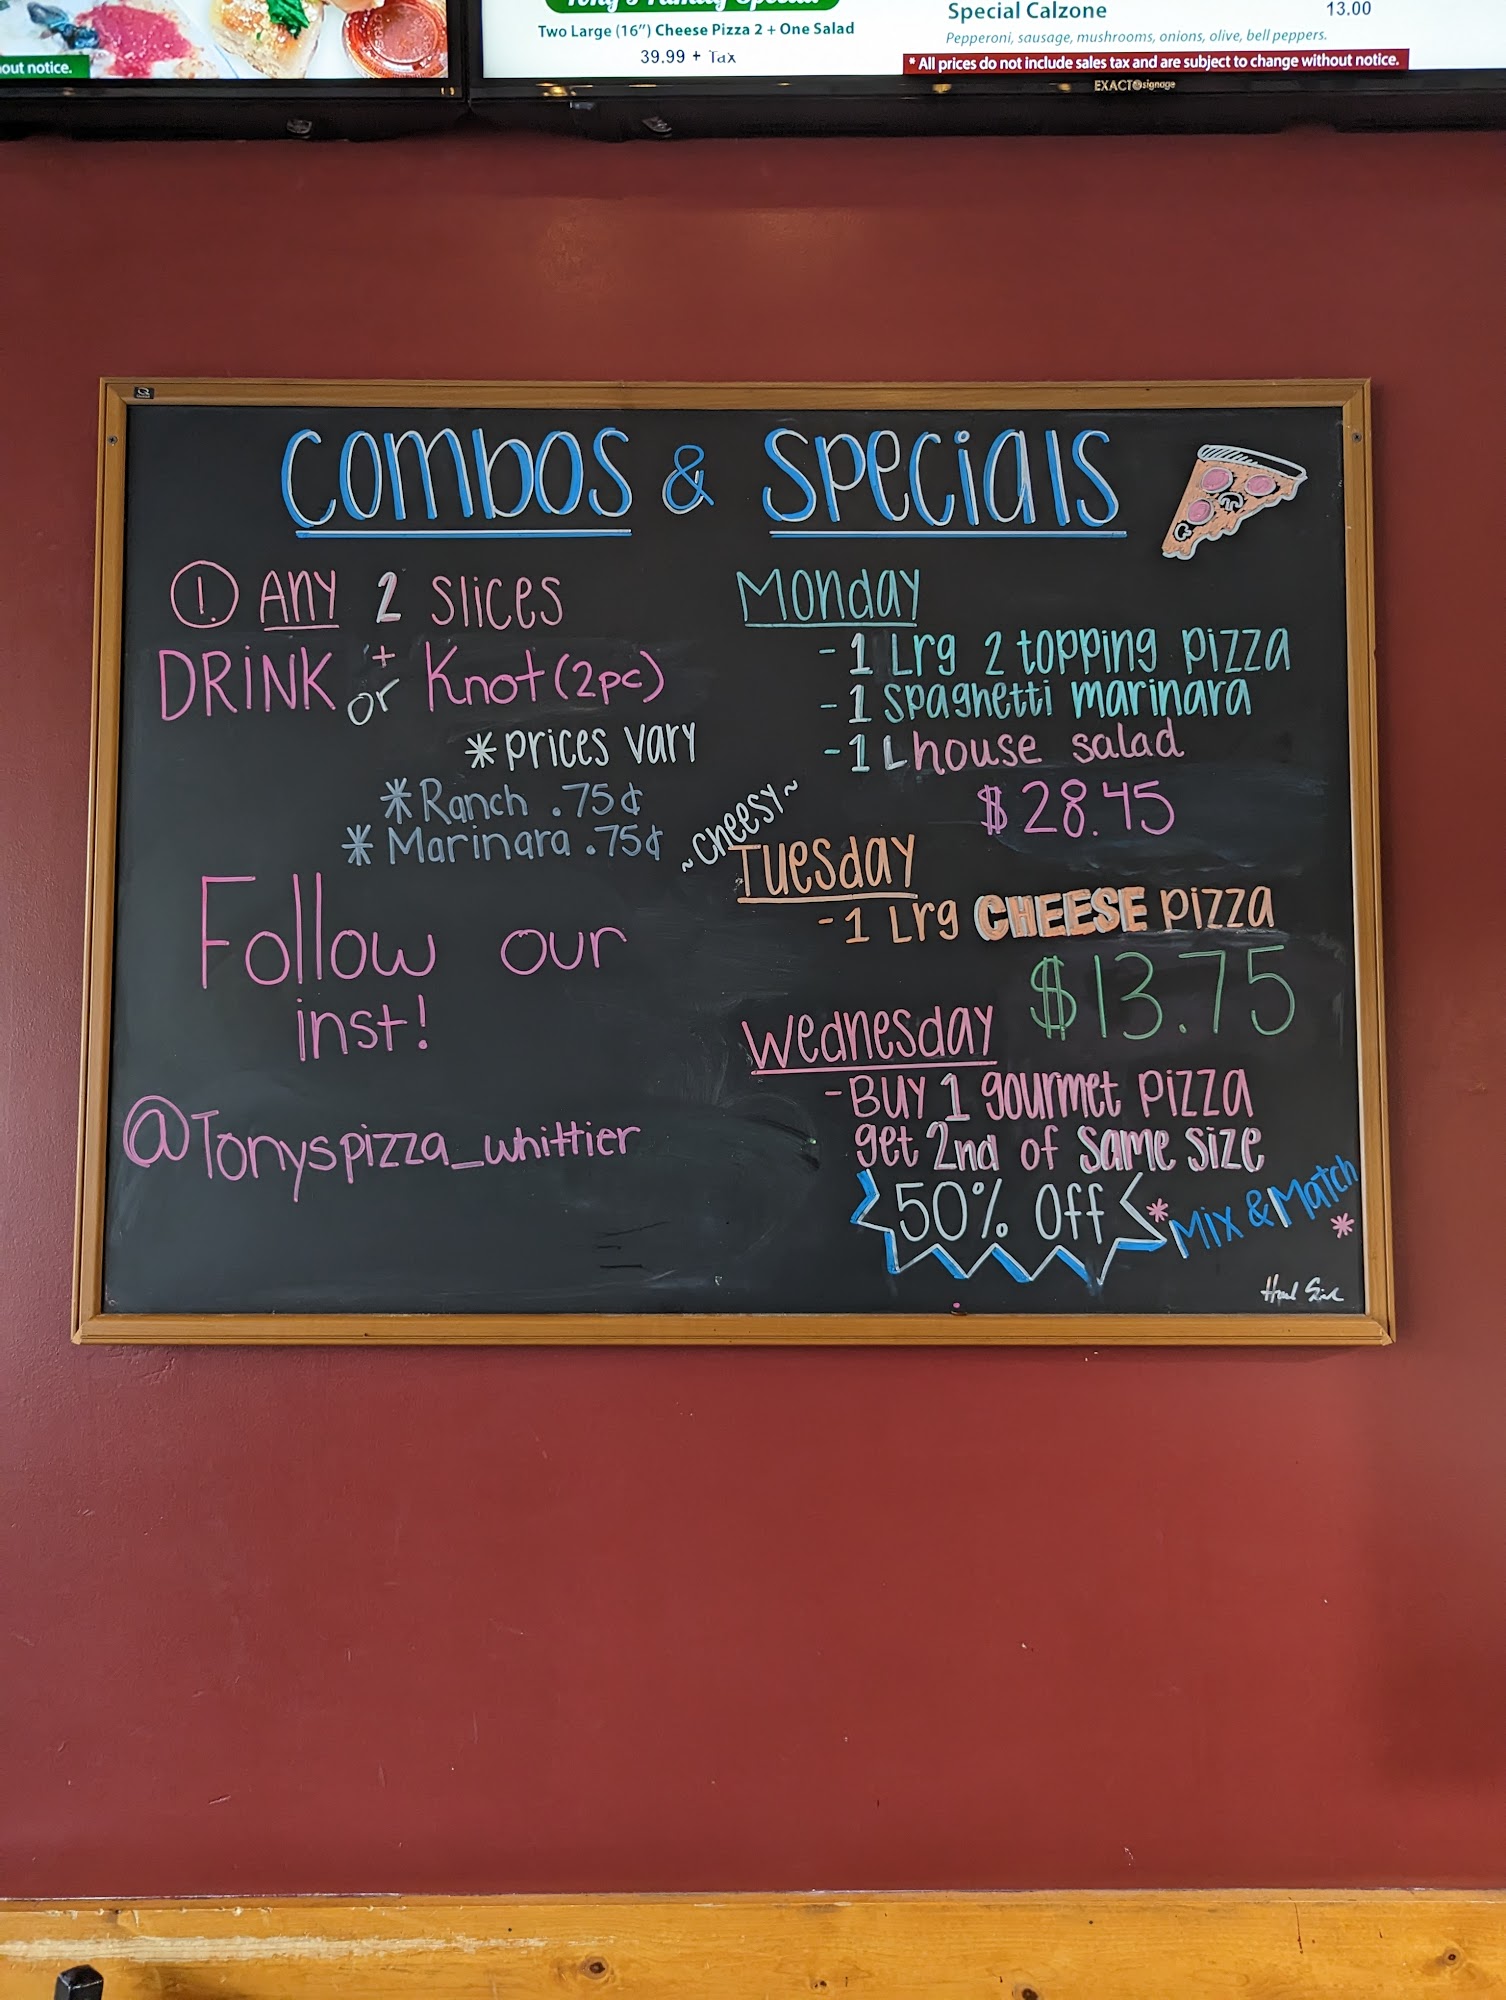 out notice.
Tony's Family Special
Two Large (16") Cheese Pizza 2 + One Salad
39.99 + Tax
Special Calzone 13.00
Pepperoni, sausage, mushrooms, onions, olive, bell peppers.
* All prices do not include sales tax and are subject to change without notice.
EXACT signage
Combos & Specials
! Any 2 slices
DRINK + or Knot (2pc)
* prices vary
* Ranch .75¢
* Marinara .75¢
Follow our
inst!
@Tonyspizza_whittier
Monday
- 1 Lrg 2 topping pizza
- 1 spaghetti marinara
- 1 L house salad
$28.45
~cheesy~
Tuesday
- 1 Lrg CHEESE pizza
$13.75
Wednesday
- Buy 1 gourmet pizza
get 2nd of same size
50% Off
* Mix & Match *